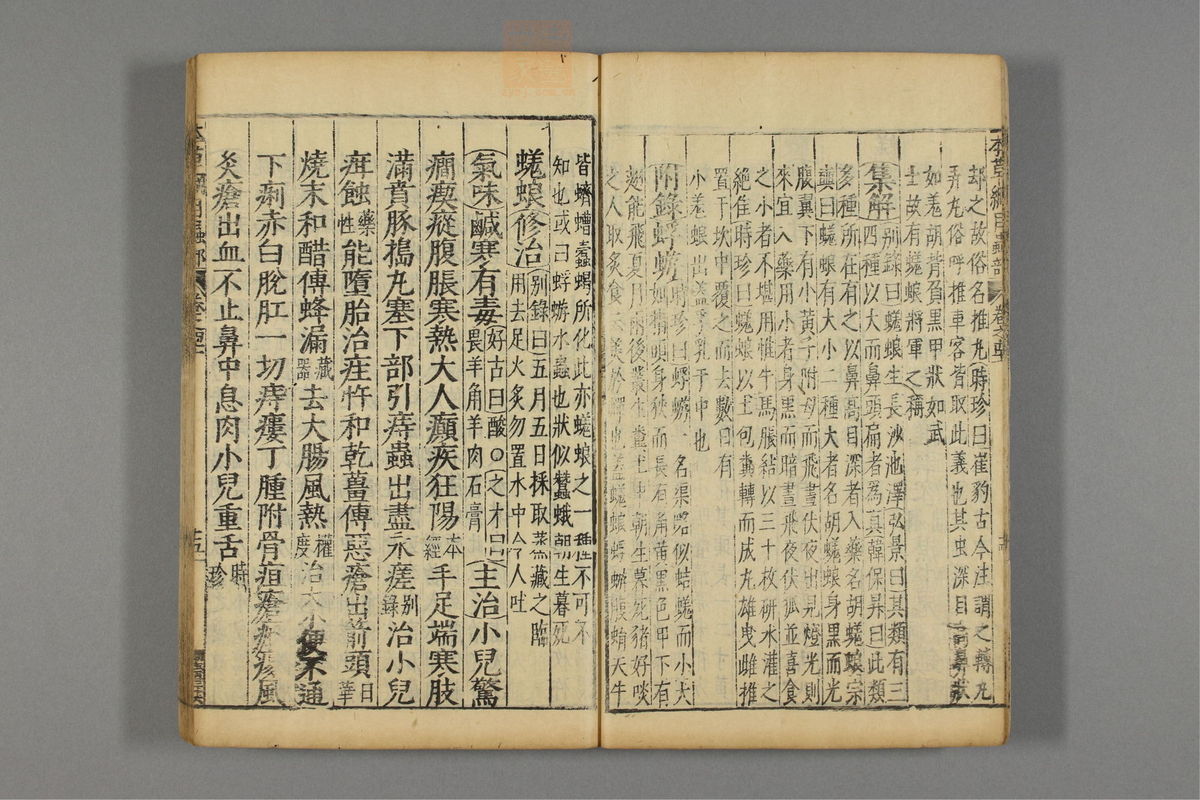 却之故俗名推丸時珍曰崔豹古今注謂之轉丸
弄丸俗呼推車客皆取此義也其虫深目高鼻狀
如羗胡背負黒甲狀如武
士故有蜣蜋將軍之稱
集解別錄曰蜣蜋生長沙池澤弘景曰其類有三
四種以大而鼻頭扁者為真韓保昇曰此類
多種所在有之以鼻高目深者入藥名胡蜣蜋宗
奭曰蜣蜋有大小二種大者名胡蜣蜋身黒而光
腹翼下有小黃子附母而飛晝伏夜出見燈光則
來宜入藥用小者身黒而暗晝飛夜伏狐並喜食
之小者不堪用惟牛馬脹結以三十枚研水灌之
絶佳時珍曰蜣蜋以土包糞轉而成丸雄曳雌推
置于坎中覆之而去數日有
小蜣蜋出葢孚乳于中也
附錄蜉蝣時珍曰蜉蝣一名渠略似蛣蜣而小大
如指頭身狹而長有角黃黒色甲下有
翅能飛夏月雨後叢生糞土中朝生暮死豬好啖
之人取炙食云美于蟬也葢蜣蜋蜉蝣腹蛸天牛
皆蠐螬蠹蝎所化此亦蜣蜋之一種不可不
知也或曰蜉蝣水蟲也狀似蠶蛾朝生暮死
蜣蜋修治別錄曰五月五日採取蒸藏之臨
用去足火炙勿置水中令人吐
氣味鹹寒有毒好古曰酸○之才曰
畏羊角羊肉石膏主治小兒驚
癇瘈瘲腹脹寒熱大人癲疾狂陽本經手足端寒肢
滿賁豚搗丸塞下部引痔蟲出盡永瘥别錄治小兒
疳蝕藥性能墮胎治疰忤和乾薑傅惡瘡出箭頭日華
燒末和醋傅蜂漏藏器去大腸風熱權度治大小便不通
下痢赤白脫肛一切痔瘻丁腫附骨疽瘡癧瘍風
灸瘡出血不止鼻中息肉小兒重舌時珍